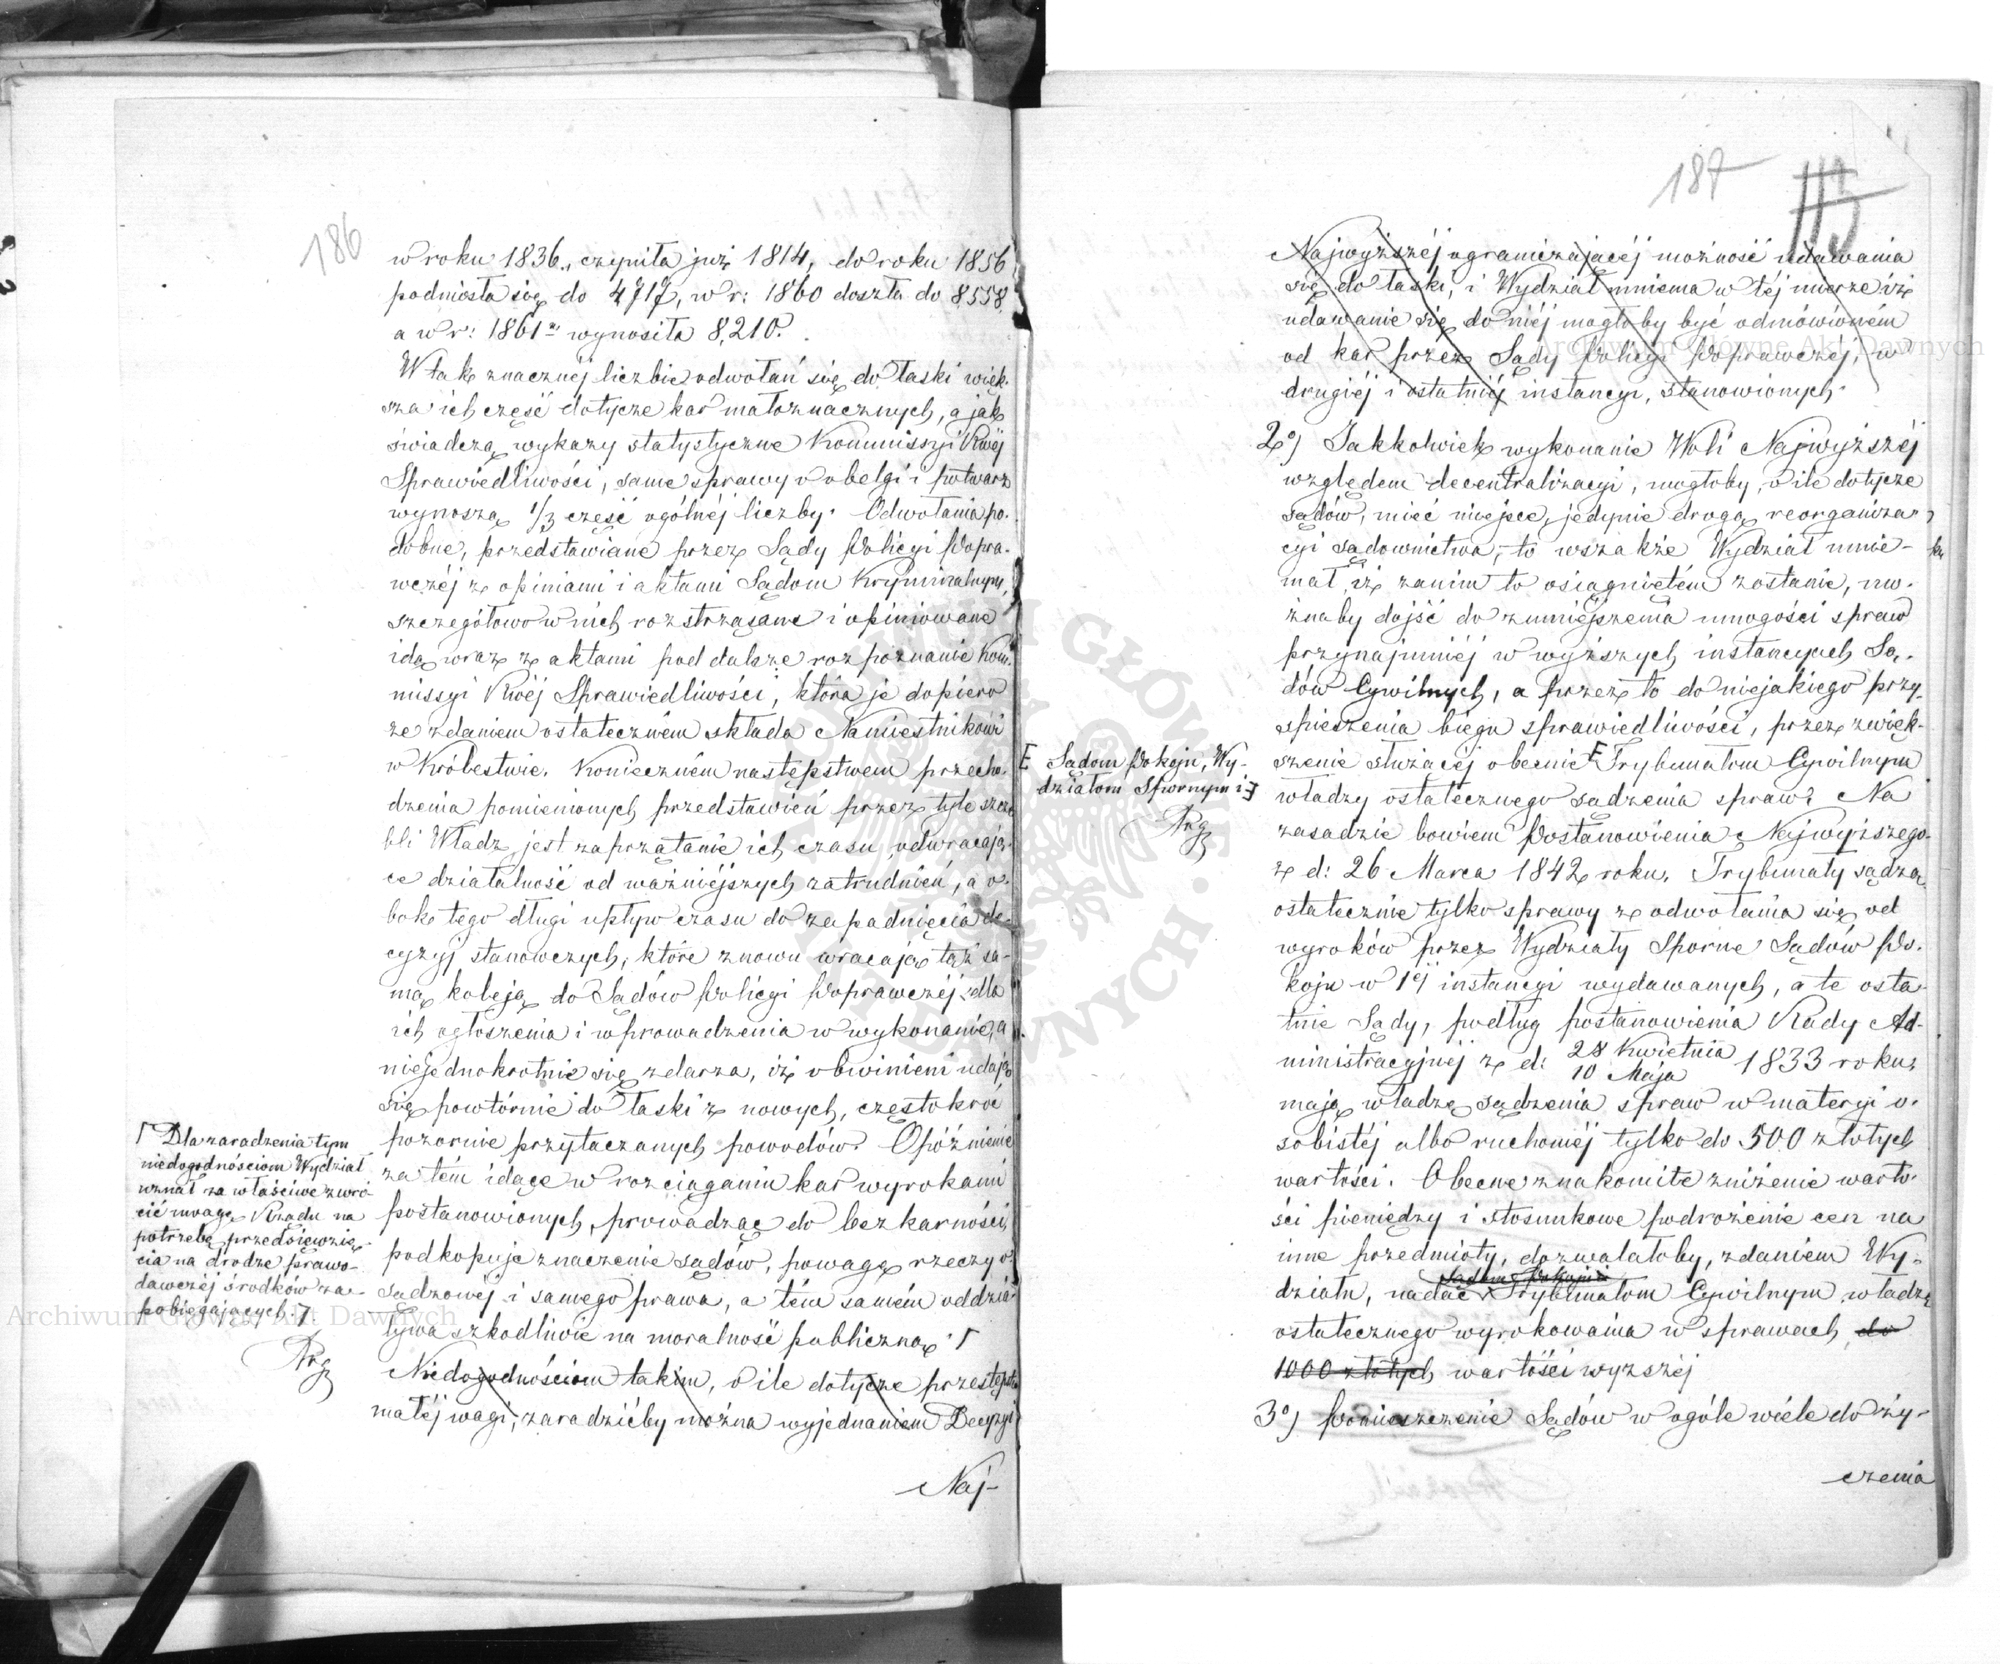 186
w roku 1836, czyniła już 1814, do roku 1856
podniosła się do 4717, w r: 1860 doszła do 8558
a w r: 1861 wynosiła 8,210.
W tak znacznéj liczbie odwołań się do łaski więk-
sza ich część dotycze kar małoznacznych, a jak
świadczą wykazy statystyczne Kommissyi Rwéj
Sprawiedliwości, same sprawy o obelgi i potwarz
wynoszą 1/3 część ogólnéj liczby. Odwołania po-
dobne, przedstawiane przez Sądy Policyi Popra-
wczéj z opiniami i aktami Sądom Kryminalnym,
szczegółowo w nich roztrząsane i opiniowane
idą wraz z aktami pod dalsze rozpoznanie Kom-
missyi Rwéj Sprawiedliwości, która je dopiero
ze zdaniem ostatecznem składa Namiestnikowi
w Królestwie. Konieczném następstwem przecho-
dzenia pomienionych przedstawień przez tyle szcze
bli Władz, jest zaprzątanie ich czasu, odwracają-
ce działalność od ważniejszych zatrudnień, a o-
bok tego długi upływ czasu do zapadnięcia de-
cyzyj stanowczych, które znowu wracają tąż sa-
mą koleją do Sądów Policyi Poprawczéj dla
ich ogłoszenia i wprowadzenia w wykonanie, a
niejednokrotnie się zdarza, iż obwinieni udają
się powtórnie do łaski z nowych, częstokroć
pozornie przytaczanych powodów. Opóźnienie
za tém idące w rozciąganiu kar wyrokami
postanowionych, prowadząc do bezkarności,
podkopuje znaczenie sądów, powagę rzeczy o-
sądzonéj i samego prawa, a tém samém oddzia-
ływa szkodliwie na moralność publiczną. Γ
Niedogodnościom takim, o ile dotycze przestępstw
małéj wagi, zaradzićby można wyjednaniem Decyzyi
Naj-
Γ Dla zaradzenia tym
niedogodnościom Wydział
uznał za właściwe zwró-
cić uwagę Rządu na
potrzebę przedsięwzię-
cia na drodze prawo-
dawczéj środków za-
pobiegających. 7
187
113
Najwyższéj ograniczającéj możność udawania
się do łaski, i Wydział mniema w téj mierze iż
udawanie się do niéj mogłoby być odmówioném
od kar przez Sądy Policyi Poprawczéj, w
drugiéj i ostatniéj instancyi, stanowionych.
2o) Jakkolwiek wykonanie Woli Najwyższéj
względem decentralizacyi, mogłoby, o ile dotycze
sądów, mieć miejsce, jedynie drogą reorganiza-
cyi sądownictwa, to wszakże Wydział mnie-
mał, iż zanim to osiągniętém zostanie, mo-
żnaby dojść do zmniejszenia mnogości spraw
przynajmniéj w wyższych instancyach Są-
dów Cywilnych, a przez to do niejakiego przy-
spieszenia biegu sprawiedliwości, przez zwięk-
szenie służącéj obecnie E Trybunałom Cywilnym
władzy ostatecznego sądzenia spraw. Na
zasadzie bowiem Postanowienia Najwyższego
z d: 26 Marca 1842 roku, Trybunały sądzą
ostatecznie tylko sprawy z odwołania się od
wyroków przez Wydziały Sporne Sądów Po-
koju w 1éj instancyi wydawanych, a te osta-
tnie Sądy, podług postanowienia Rady Ad-
ministracyjnéj z d: 28 Kwietnia 1833 roku,
10 Maja
mają władzę sądzenia spraw w materyi o-
sobistéj albo ruchoméj tylko do 500 złotych
wartości. Obecne znakomite zniżenie warto-
ści pieniędzy i stosunkowe podrożenie cen na
inne przedmioty, dozwalałoby, zdaniem Wy-
Sądom Pokoju i
działu, nadać Trybunałom Cywilnym władzę
ostatecznego wyrokowania w sprawach do
1000 złotych wartości wyższéj
3o) Pomieszczenie Sądów w ogóle wiele do ży-
czenia
E Sądom Pokoju, Wy-
działom Spornym i
Archiwum Główne Akt Dawnych
Archiwum Główne Akt Dawnych
ARCHIWUM GŁÓWNE AKT DAWNYCH